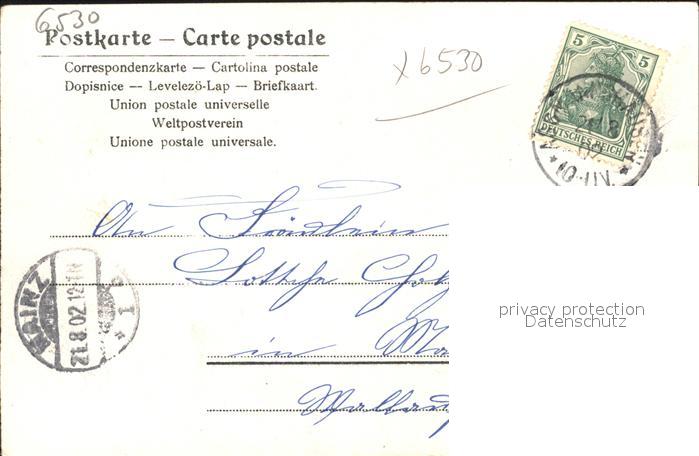 6530
Postkarte — Carte postale
Correspondenzkarte — Cartolina postale
Dopisnice — Levelezö-Lap — Briefkaart.
Union postale universelle
Weltpostverein
Unione postale universale.
x6530
5 5
DEUTSCHES REICH
21 8
10-11N.
An Fräulein
Lottche
in
MAINZ
21.8.02 12-1N
1
privacy protection
Datenschutz